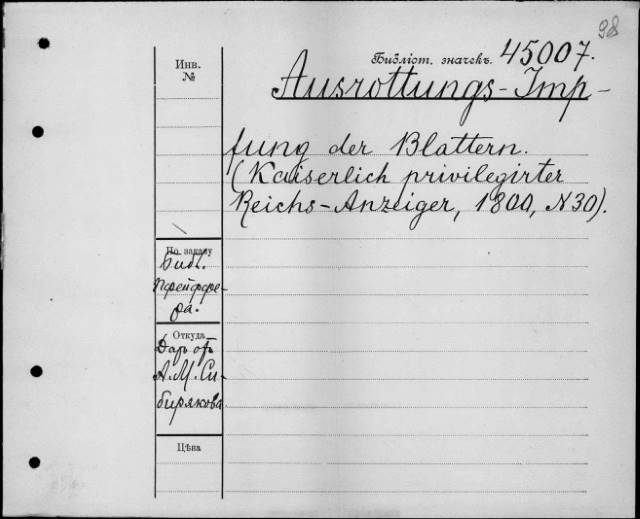 98
Библіот. значекъ. 45007.
Инв.
№
Ausrottungs-Imp-
fung der Blattern.
(Kaiserlich privilegirter
Reichs-Anzeiger, 1800, N30).
По заказу
Библ.
Пфейффе-
ра.
Откуда
Даръ отъ
А.М. Си-
бирякова
Цѣна